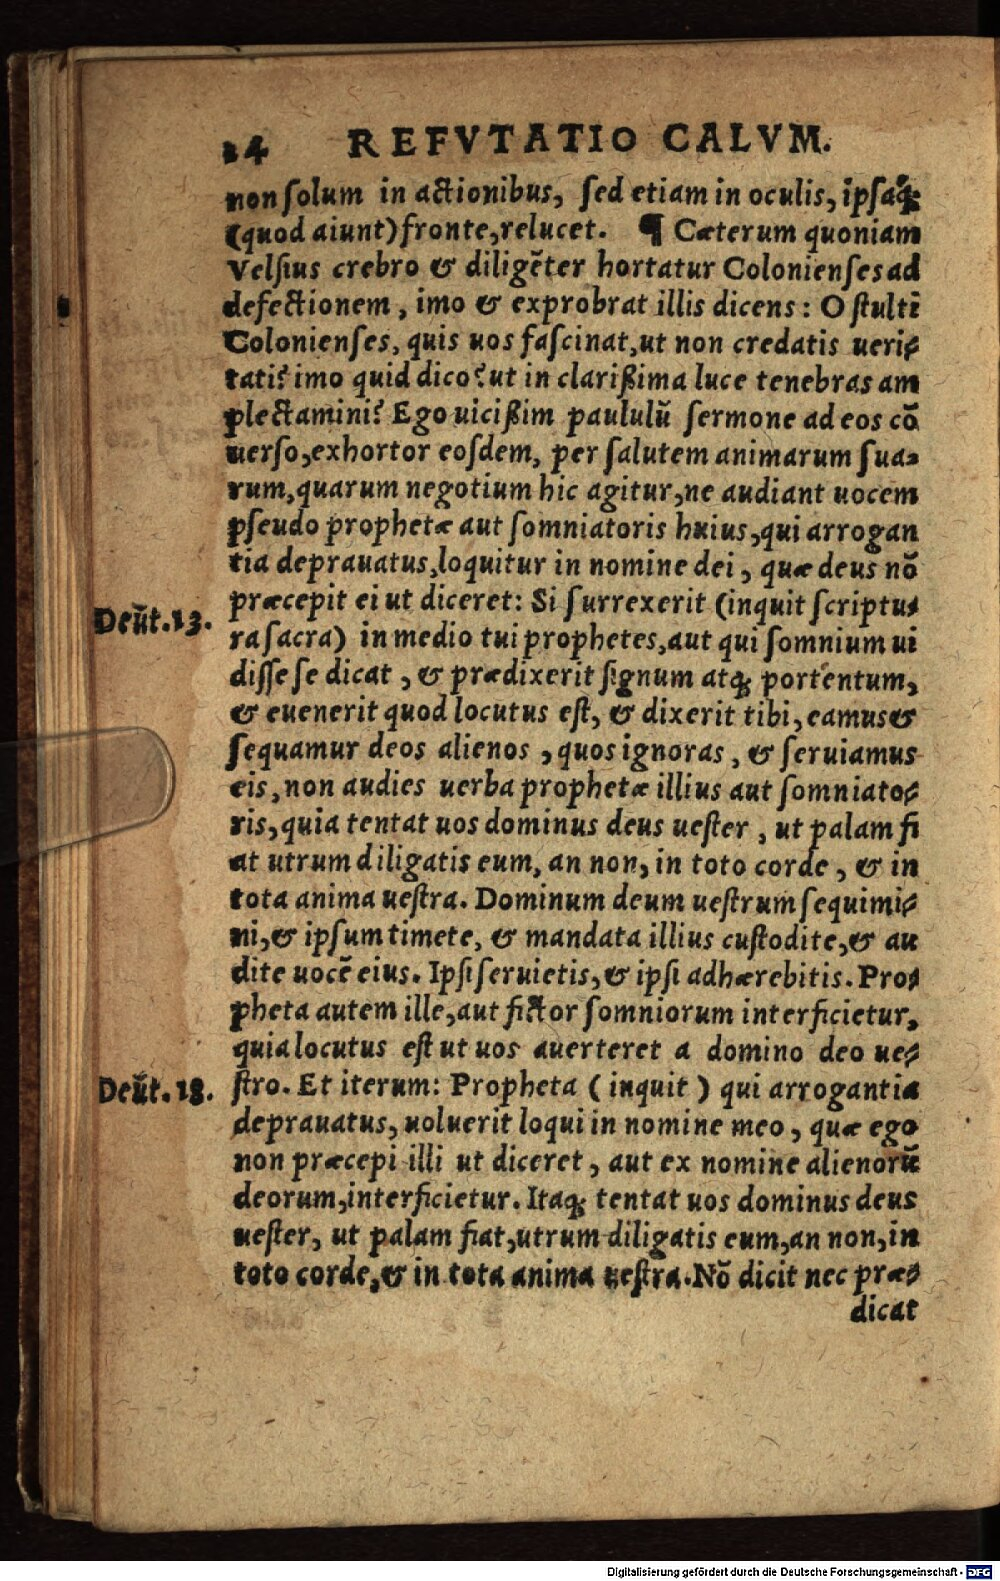 24 REFVTATIO CALVM.
non ſolum in actionibus, ſed etiam in oculis, ipſaq́;
(quod aiunt) fronte, relucet. ¶ Cæterum quoniam
Velſius crebro & diligẽter hortatur Colonienſes ad
defectionem, imo & exprobrat illis dicens: O ſtulti
Colonienſes, quis uos faſcinat, ut non credatis ueri-
tati? imo quid dico? ut in clarißima luce tenebras am
plectamini? Ego uicißim paululũ ſermone ad eos cõ
uerſo, exhortor eoſdem, per ſalutem animarum ſua-
rum, quarum negotium hic agitur, ne audiant uocem
pſeudo prophetæ aut ſomniatoris huius, qui arrogan
tia deprauatus, loquitur in nomine dei, quæ deus nõ
præcepit ei ut diceret: Si ſurrexerit (inquit ſcriptu-
Deũt. 13.
ra ſacra) in medio tui prophetes, aut qui ſomnium ui
diſſe ſe dicat, & prædixerit ſignum atq; portentum,
& euenerit quod locutus eſt, & dixerit tibi, eamus &
ſequamur deos alienos, quos ignoras, & ſeruiamus
eis, non audies uerba prophetæ illius aut ſomniato-
ris, quia tentat uos dominus deus ueſter, ut palam fi
at utrum diligatis eum, an non, in toto corde, & in
tota anima ueſtra. Dominum deum ueſtrum ſequimi-
ni, & ipſum timete, & mandata illius cuſtodite, & au
dite uocẽ eius. Ipſi ſeruietis, & ipſi adhærebitis. Pro-
pheta autem ille, aut fictor ſomniorum interficietur,
quia locutus eſt ut uos auerteret a domino deo ue-
Deũt. 18.
ſtro. Et iterum: Propheta (inquit) qui arrogantia
deprauatus, uoluerit loqui in nomine meo, quæ ego
non præcepi illi ut diceret, aut ex nomine alienorũ
deorum, interficietur. Itaq; tentat uos dominus deus
ueſter, ut palam fiat, utrum diligatis eum, an non, in
toto corde, & in tota anima ueſtra. Nõ dicit nec præ-
dicat
Digitalisierung gefördert durch die Deutsche Forschungsgemeinschaft - DFG